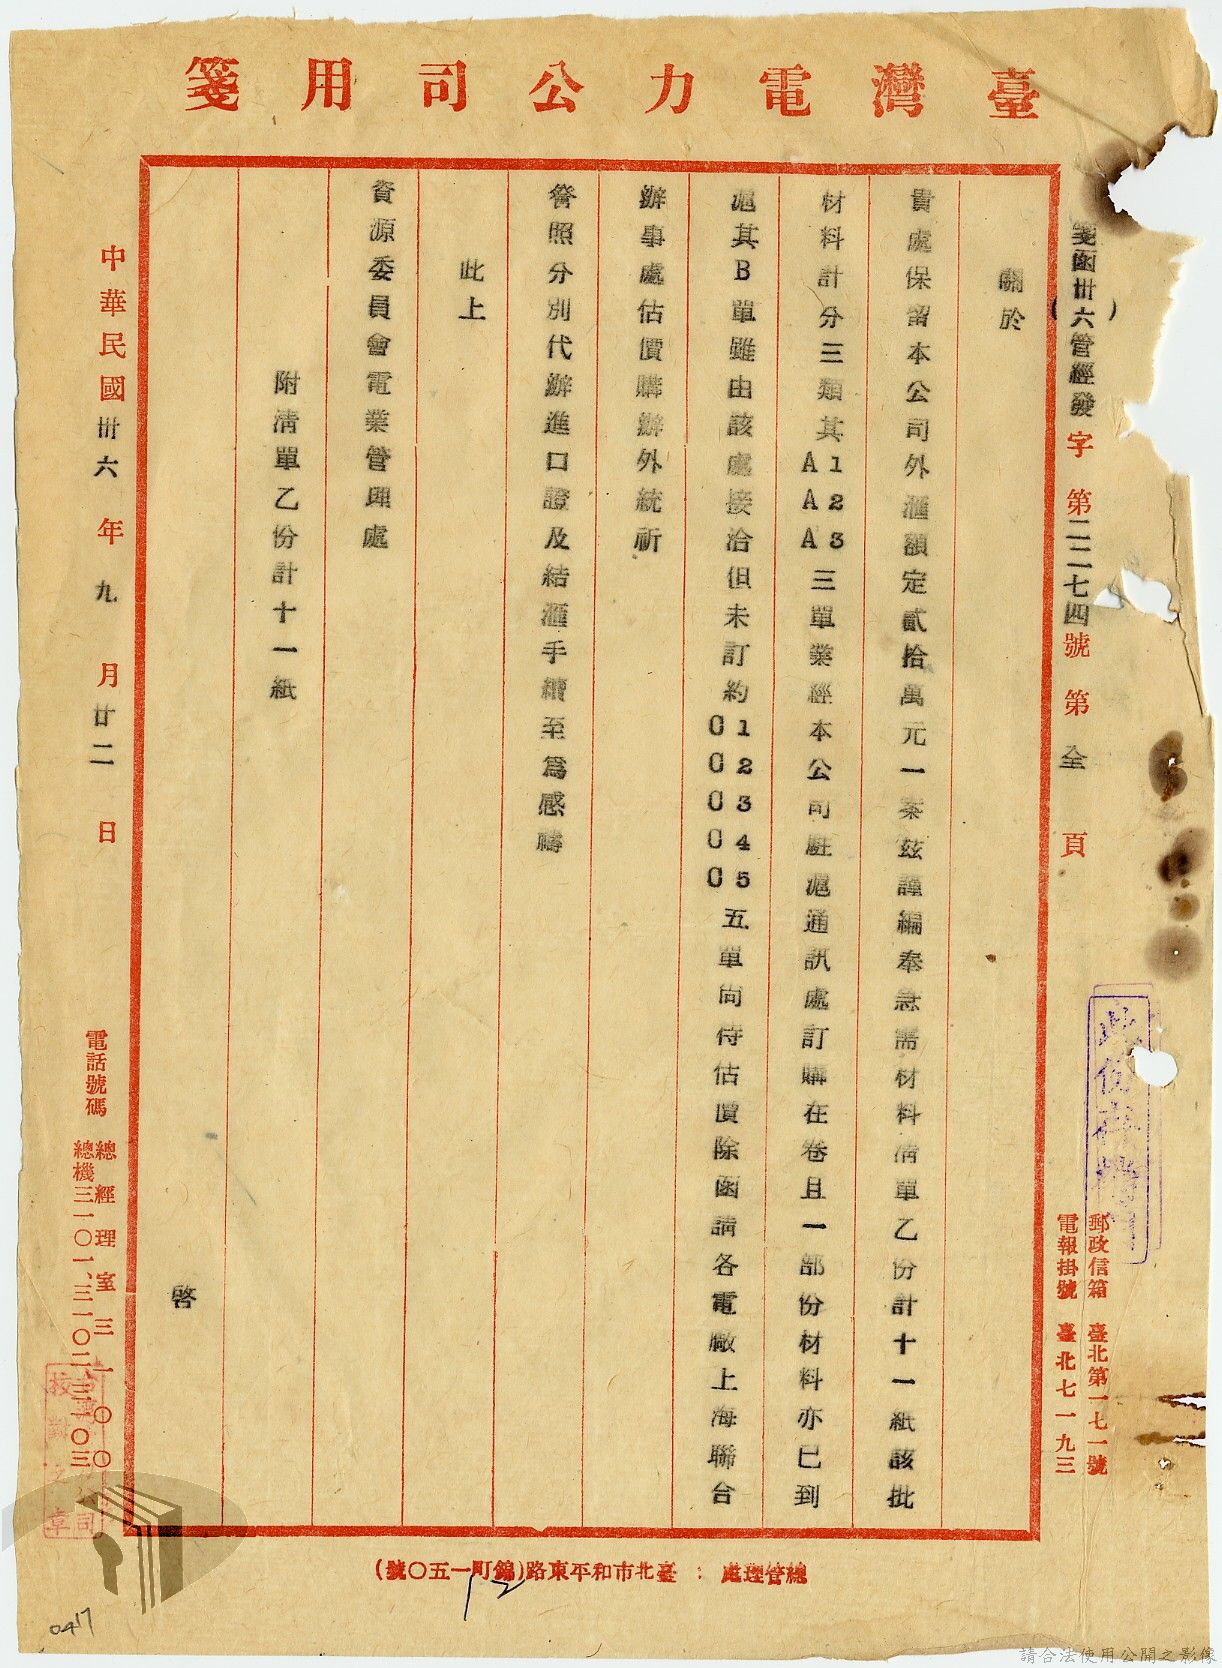 臺灣電力公司用箋
箋函卅六管經發字第二二七四號第全頁
郵政信箱 臺北第一七一號
電報掛號 臺北七一九三
關於
貴處保留本公司外滙額定貳拾萬元一案茲謹編奉急需材料清單乙份計十一紙該批
材料計分三類其A1 A2 A3三單業經本公司駐滬通訊處訂購在卷且一部份材料亦已到
滬其B單雖由該處接洽但未訂約C1 C2 C3 C4 C5五單尚待估價除函請各電廠上海聯合
辦事處估價購辦外統祈
詧照分別代辦進口證及結滙手續至為感禱
此上
資源委員會電業管理處
附清單乙份計十一紙
啓
中華民國卅六年九月廿二日
電話號碼
總經理室三一〇〇
總機三一〇一、三一〇二、三一〇三
總管理處：臺北市和平東路(錦町一五〇號)
12
0417
請合法使用公開之影像